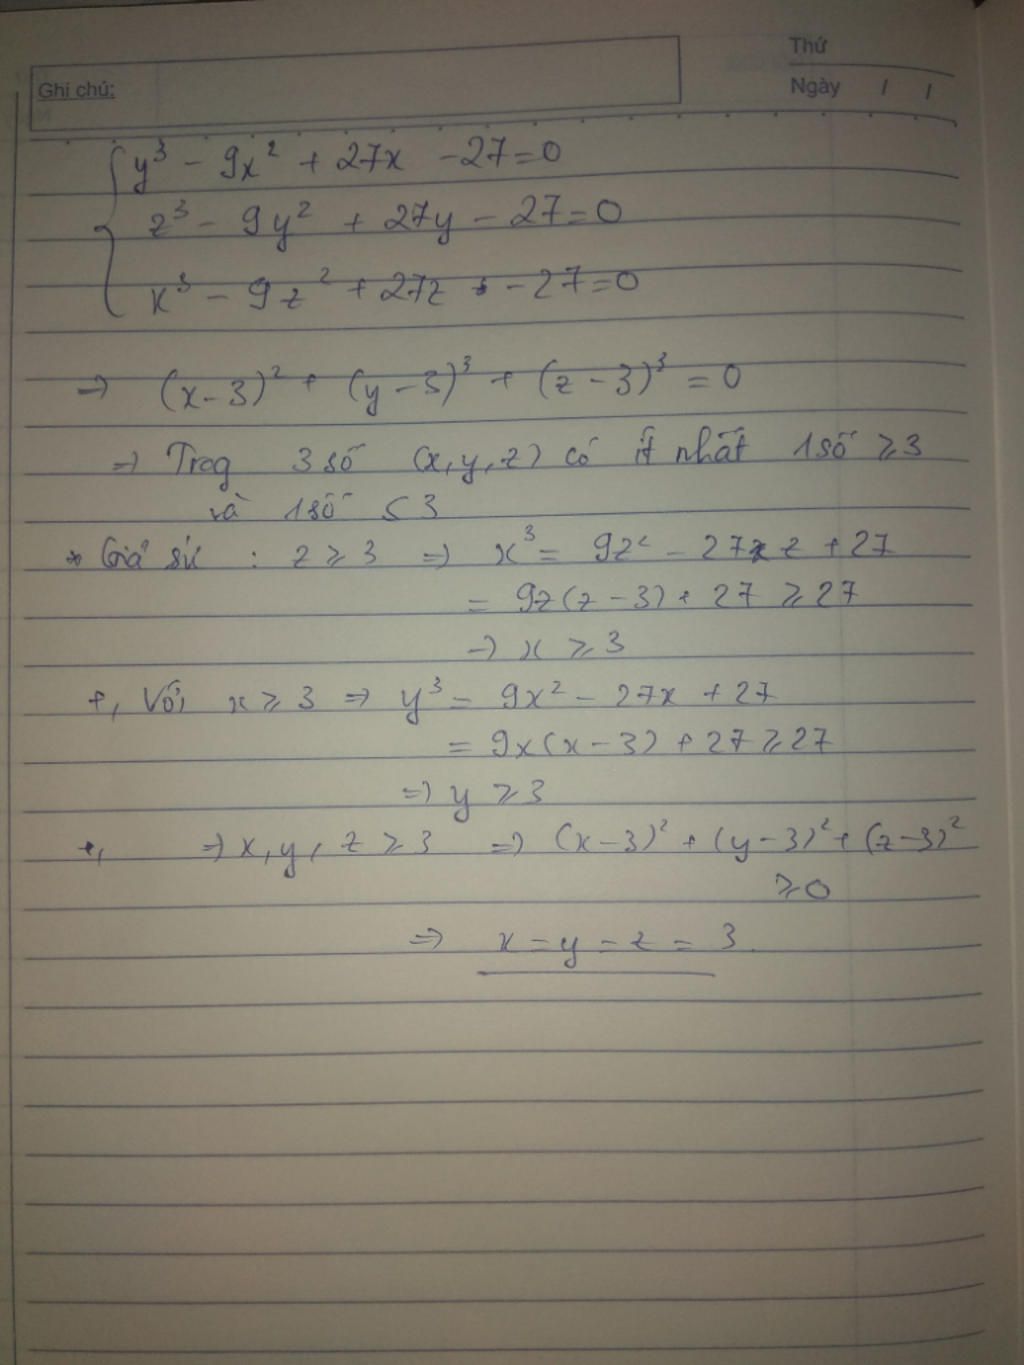 Thứ
Ghi chú:
Ngày / /
y³ - 9x² + 27x - 27 = 0
z³ - 9y² + 27y - 27 = 0
x³ - 9z² + 27z - 27 = 0
⇒ (x-3)² + (y-3)³ + (z-3)³ = 0
⇒ Trog 3 số (x,y,z) có ít nhất 1 số ≥ 3
và 1 số ≤ 3
* Giả sử : z ≥ 3 ⇒ x³ = 9z² - 27z + 27
= 9z(z-3) + 27 ≥ 27
⇒ x ≥ 3
+, Với x ≥ 3 ⇒ y³ = 9x² - 27x + 27
= 9x(x-3) + 27 ≥ 27
⇒ y ≥ 3
+, ⇒ x, y, z ≥ 3 ⇒ (x-3)² + (y-3)² + (z-3)²
≥ 0
⇒ x = y = z = 3.